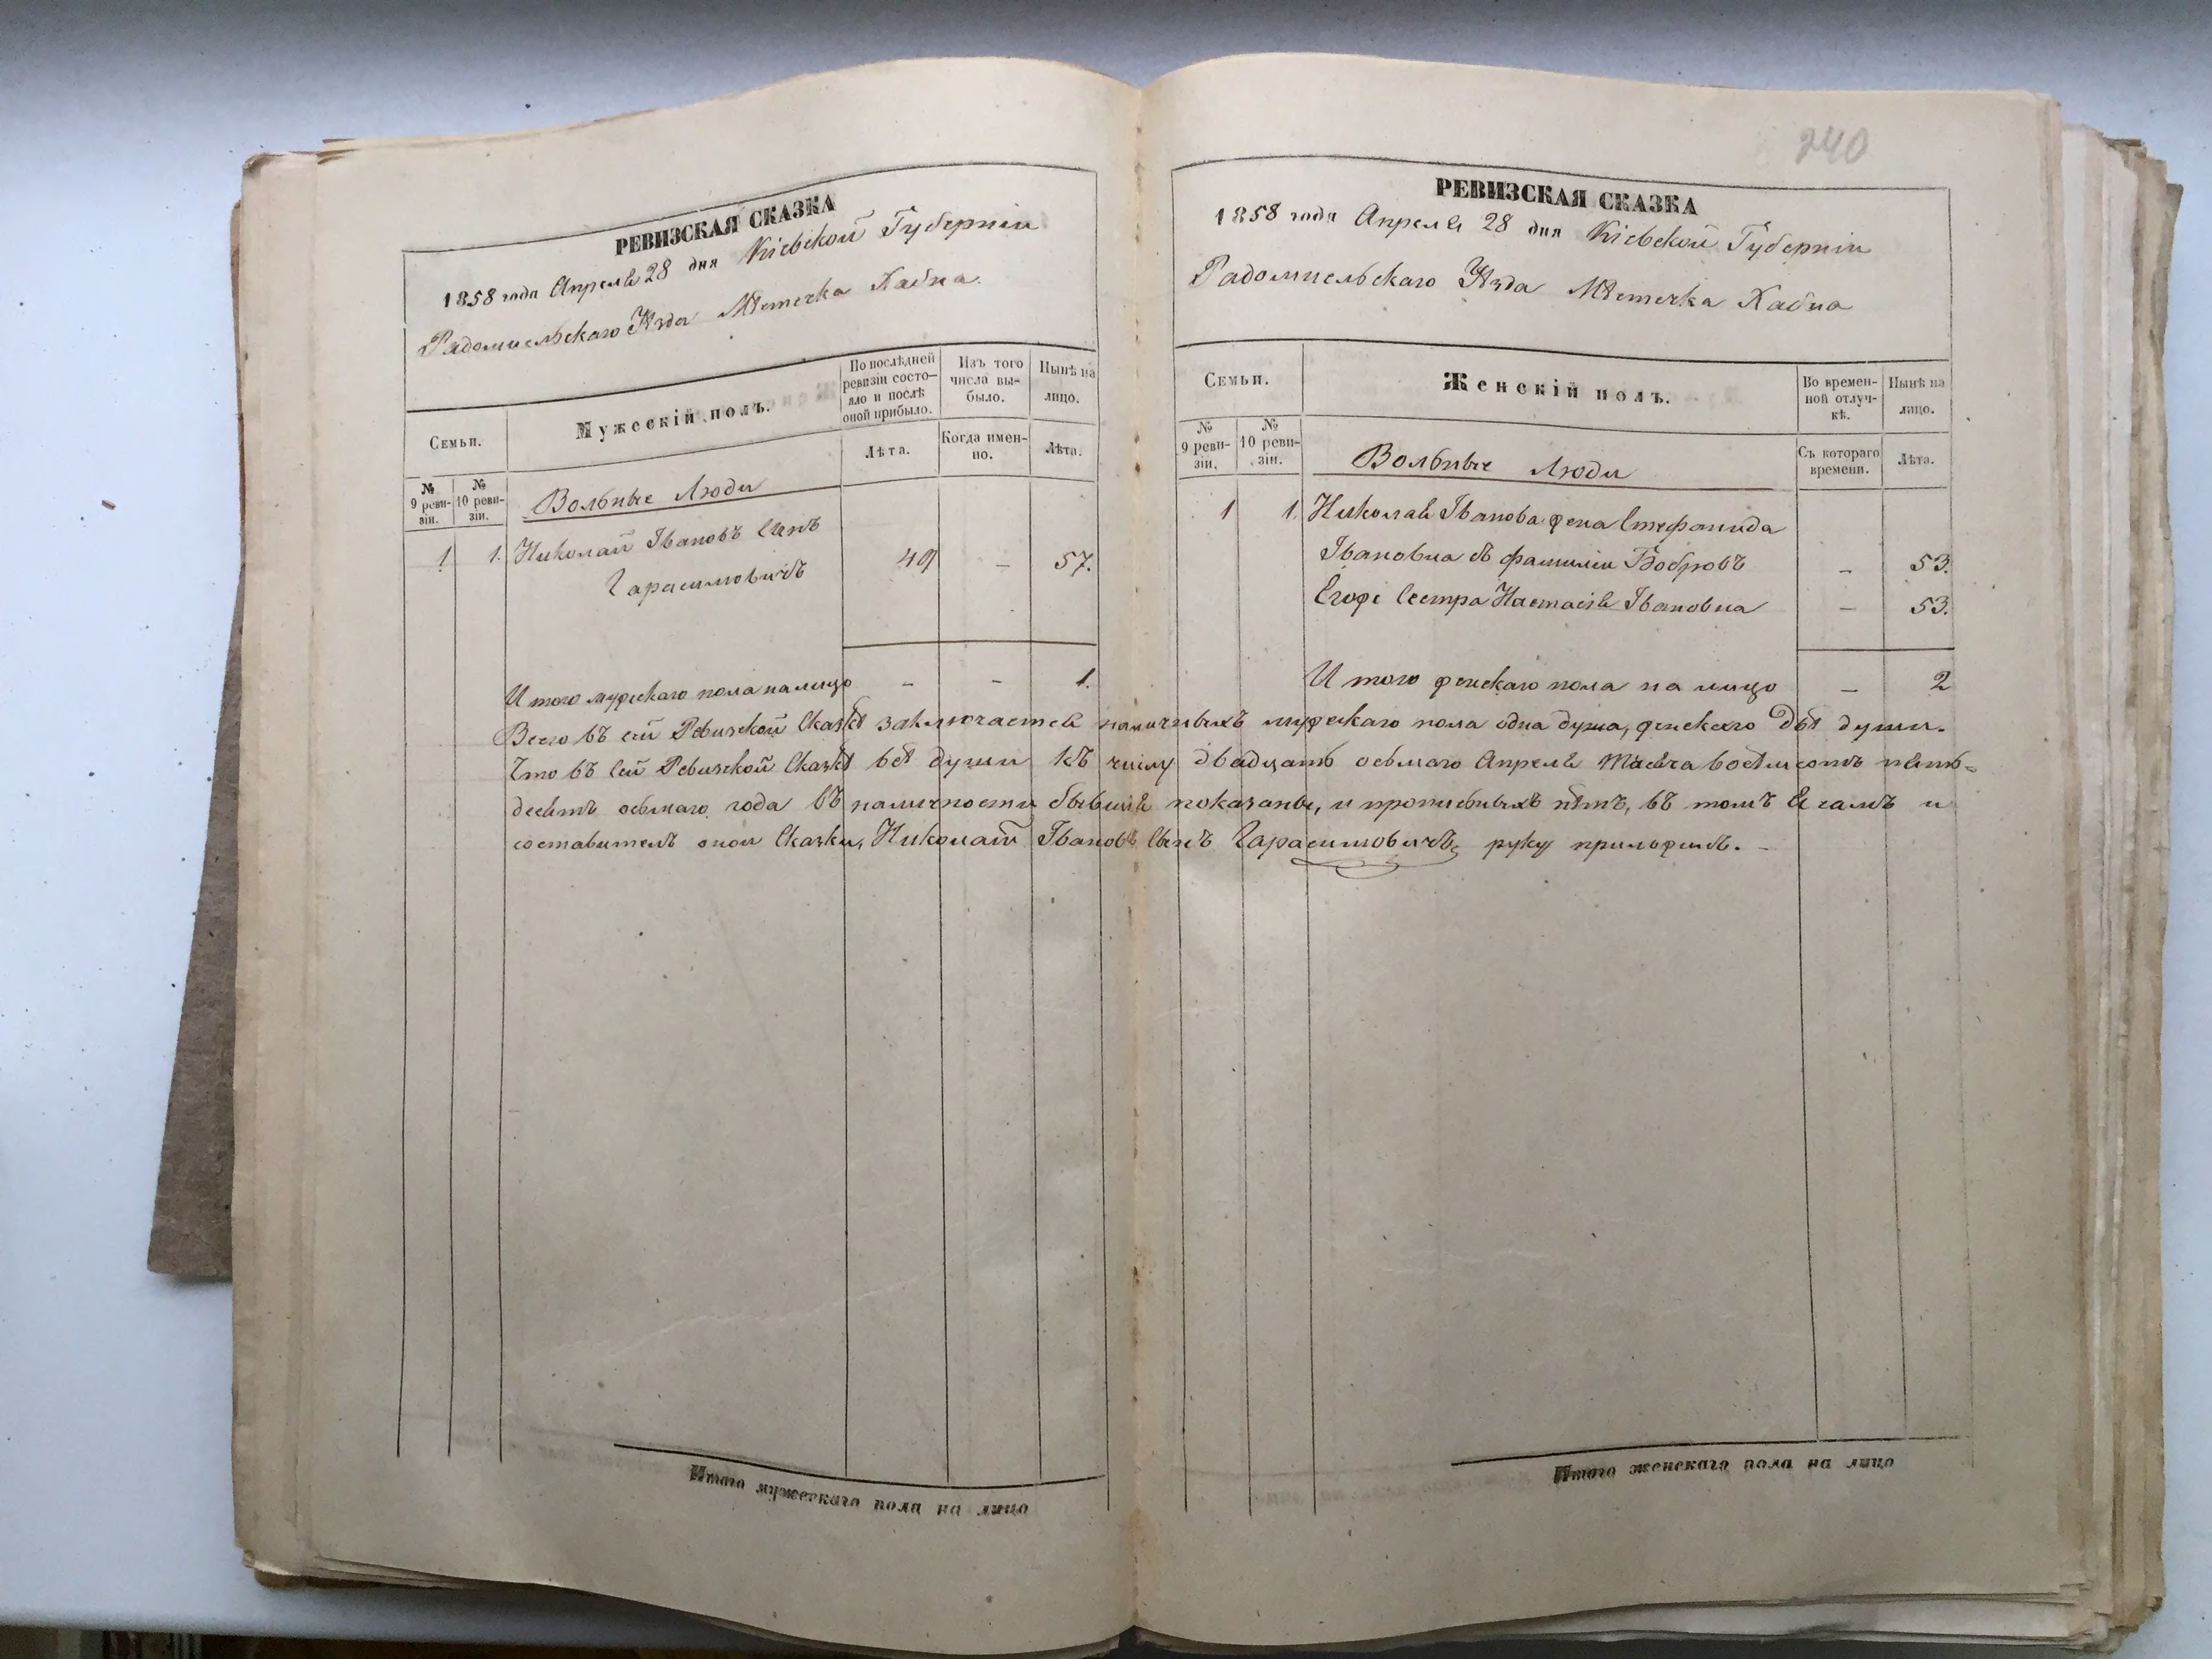 РЕВИЗСКАЯ СКАЗКА
1858 года Апреля 28 дня Кіевской Губерніи
Радомысльскаго Уѣзда Мѣстечка Хабна.
Семьи.
Мужескій полъ.
По послѣдней
ревизіи состо-
яло и послѣ
оной прибыло.
Изъ того
числа вы-
было.
Нынѣ на
лицо.
Лѣта.
Когда имен-
но.
Лѣта.
№
9 реви-
зіи.
№
10 реви-
зіи.
Вольные Люди
1 1. Николай Ивановъ Сынъ
Гарасимовичъ 49 — 57.
И того мужескаго пола на лицо — — 1.
240
РЕВИЗСКАЯ СКАЗКА
1858 года Апреля 28 дня Кіевской Губерніи
Радомысльскаго Уѣзда Мѣстечка Хабна
Семьи.
Женскій полъ.
Во времен-
ной отлуч-
кѣ.
Нынѣ на
лицо.
№
9 реви-
зіи.
№
10 реви-
зіи.
Съ котораго
времени.
Лѣта.
Вольные Люди
1 1. Николая Иванова жена Стефанида
Ивановна съ фамиліи Бобровъ — 53.
Егоже Сестра Настасія Ивановна — 53.
И того женскаго пола на лицо — 2
Всего въ сей Ревизской Сказкѣ заключается наличныхъ мужескаго пола одна душа, женскаго двѣ души.
Что въ сей Ревизской Сказкѣ всѣ души къ числу двадцать осьмаго Апреля Тысяча восѣмсотъ пять-
десятъ осьмаго года въ наличности бывшія показаны, и прописныхъ нѣтъ, въ томъ Я самъ и
составитель оной Сказки, Николай Ивановъ Сынъ Гарасимовичъ, руку приложилъ. —
Итого мужескаго пола на лицо
Итого женскаго пола на лицо